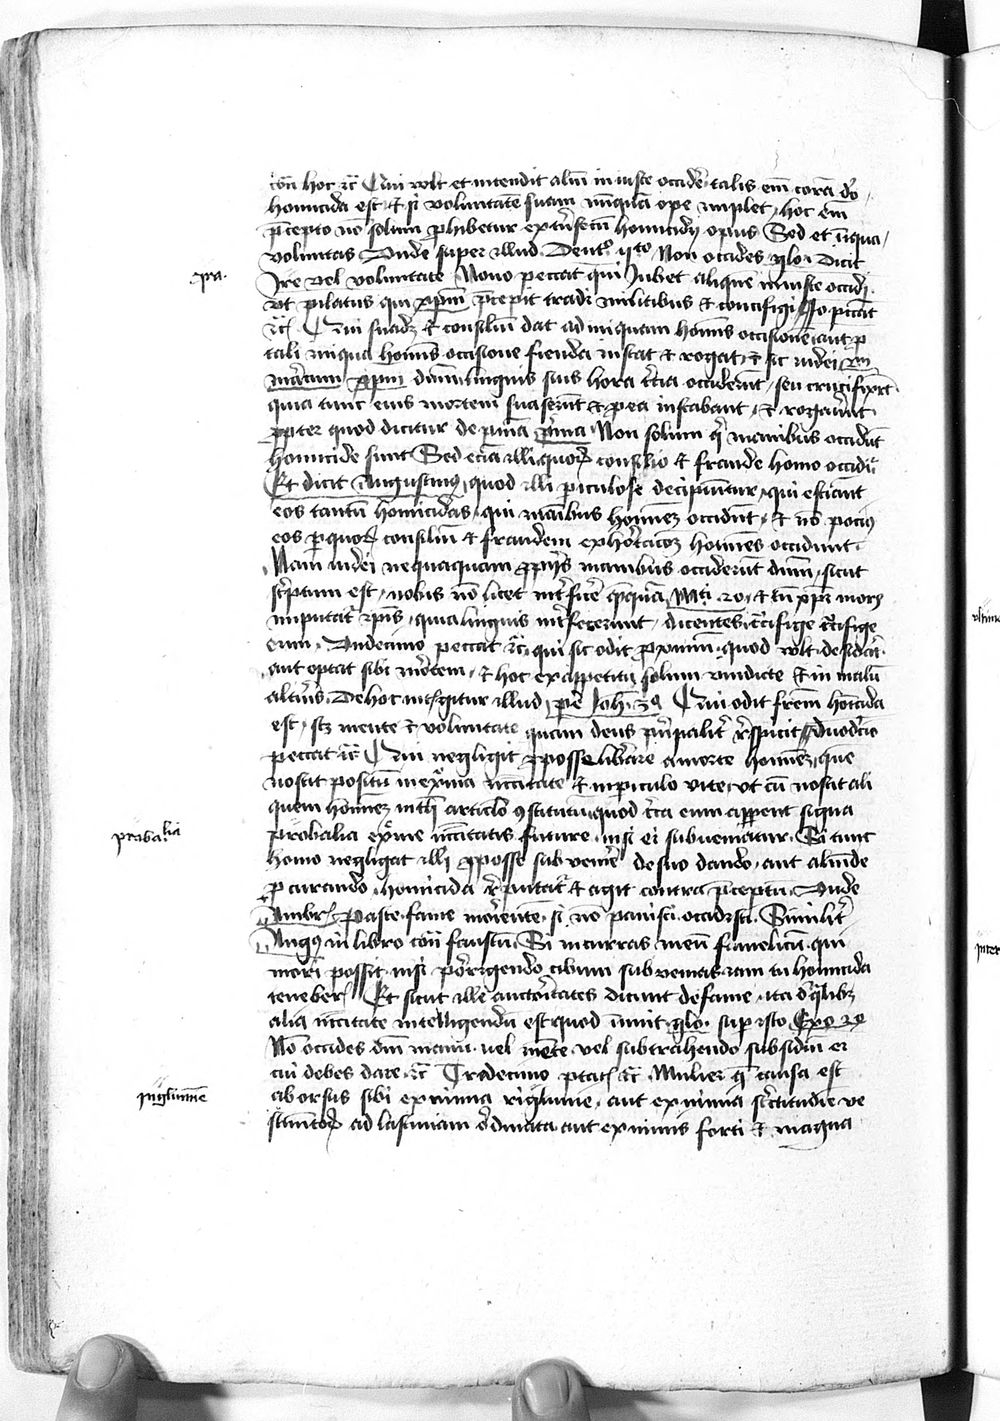 hoc Qui vult et intendit aliū iniuste occidere talis eni corā deo
homicida est et si voluntatē suam nūquā ope implet hoc em̄
p̄cepto nō solum prohibetur homicidij opus Sed et iniqua
voluntas Unde super illud Deutro. Non occides glo dicit
pra.
Ire vel voluntate Nono peccat qui Iubet aliquē iniuste occidi
ut pilatus qui xpm̄ p̄cepit tradi militibus et crucifigi
Qui suadet et consiliū dat ad iniquam homīs occisionem aut p
tali iniqua homīs occisione fienda instat et rogat et sic iudei
xpm dnm linguis suis hora t̄cia occiderūt seu crucifixerūt
quia tunc eius mortem suaserūt et pro ea instabant et rogauerūt
propter quod dicitur de Non solum qui manibus occidūt
homicide sunt Sed eciā illi quorum consilio et fraude homo occiditur
Et dicit Augustinus quod illi piculose decipiuntur qui estimant
eos tantū homicidas qui manibus hominez occidūt et nō pocius
eos per quorum consiliū et fraudem exhortacōz homines occidunt
Nam iudei nequaquam proprijs manibus occiderunt dnm sicut
scriptum est nobis nō licet int̄ficere quēquā Mt. 20 et tn̄ xpi mors
imputatur ipsis quia linguis int̄fecerunt dicentes crucifige crucifige
eum Undecimo peccat qui sic odit proximū quod vult desiderat
aut optat sibi mortem et hoc ex appetitu solum vindicte et in malū
alterius De hoc int̄ligitur illud Joh. 3o Qui odit frēm homicida
est scz mente et voluntate quam deus principaliter respicit duodecimo
peccat Qui negligit pro posse liberare a morte hominez quē
noscit positū in extrema nēcitate et in piculo vite ut cū noscat ali
quem hominez in tali articulo constitutū quod circa eum apparent signa
probalia
probalia extreme necitatis future nisi ei subueniatur Si tunc
homo negligat illi pro posse subuenire de suo dando aut aliunde
procurando homicida reputatur et agit contra p̄ceptū Unde
Ambr. Pasce fame moriente si nō pauisti occidisti Similiter
Augus in libro con̄ faustū Si incurras in eū famelicū qui
mori possit nisi porrigendo cibum subuenias iam tu homicida
teneberis Et sicut ille auctoritates dicunt de fame ita de qualibz
alia necitate intelligendū est quod innuit glo. super isto Exo 20
Nō occides dm manu uel mente vel subtrahendo subsidiū ei
cui debes dare Tredecimo peccat Mulier que causa est
piglumīe
aborsus sibi ex nimia aut ex nimia strictitudīe ve
stimentorum ad lasciuiam ordinata aut ex nimis forti et magna